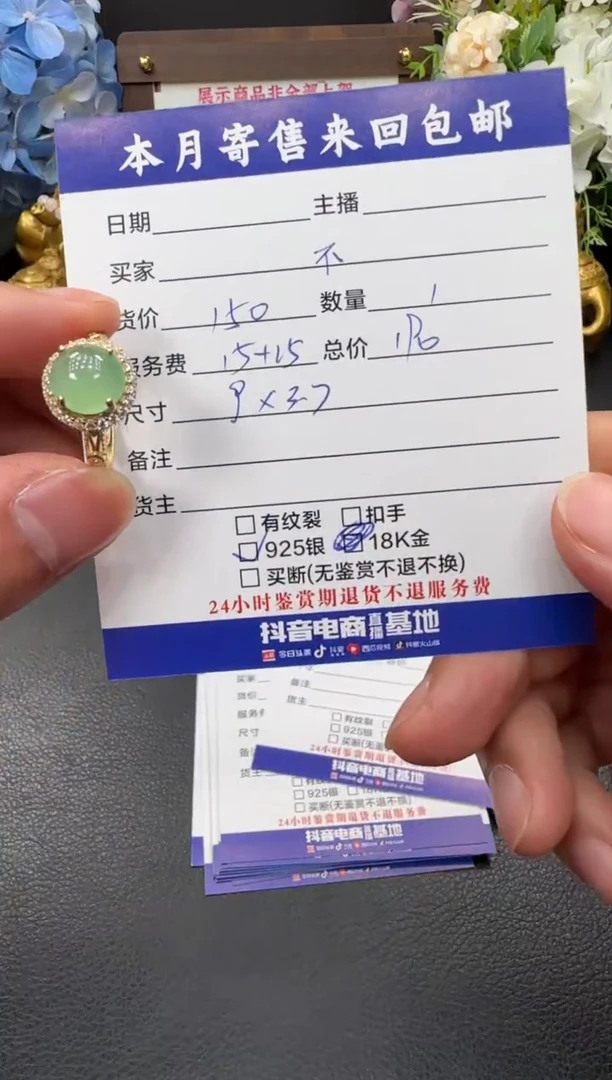 展示商品非全部上架
本月寄售来回包邮
日期 主播
买家 不
货价 150 数量 1
服务费 15+15 总价
尺寸 9×3.7
备注
货主
□有纹裂 □扣手
□925银 □18K金
□买断(无鉴赏不退不换)
24小时鉴赏期退货不退服务费
抖音电商直播基地
今日头条 抖音 西瓜视频 抖音火山版
备注
货价 货主
服务费 □有纹裂
尺寸 □925银
□买断(无
24小时鉴赏期退
货主
抖音电商直播基地
□925银
□买断(无鉴赏不退不换)
24小时鉴赏期退货不退服务费
抖音电商直播基地